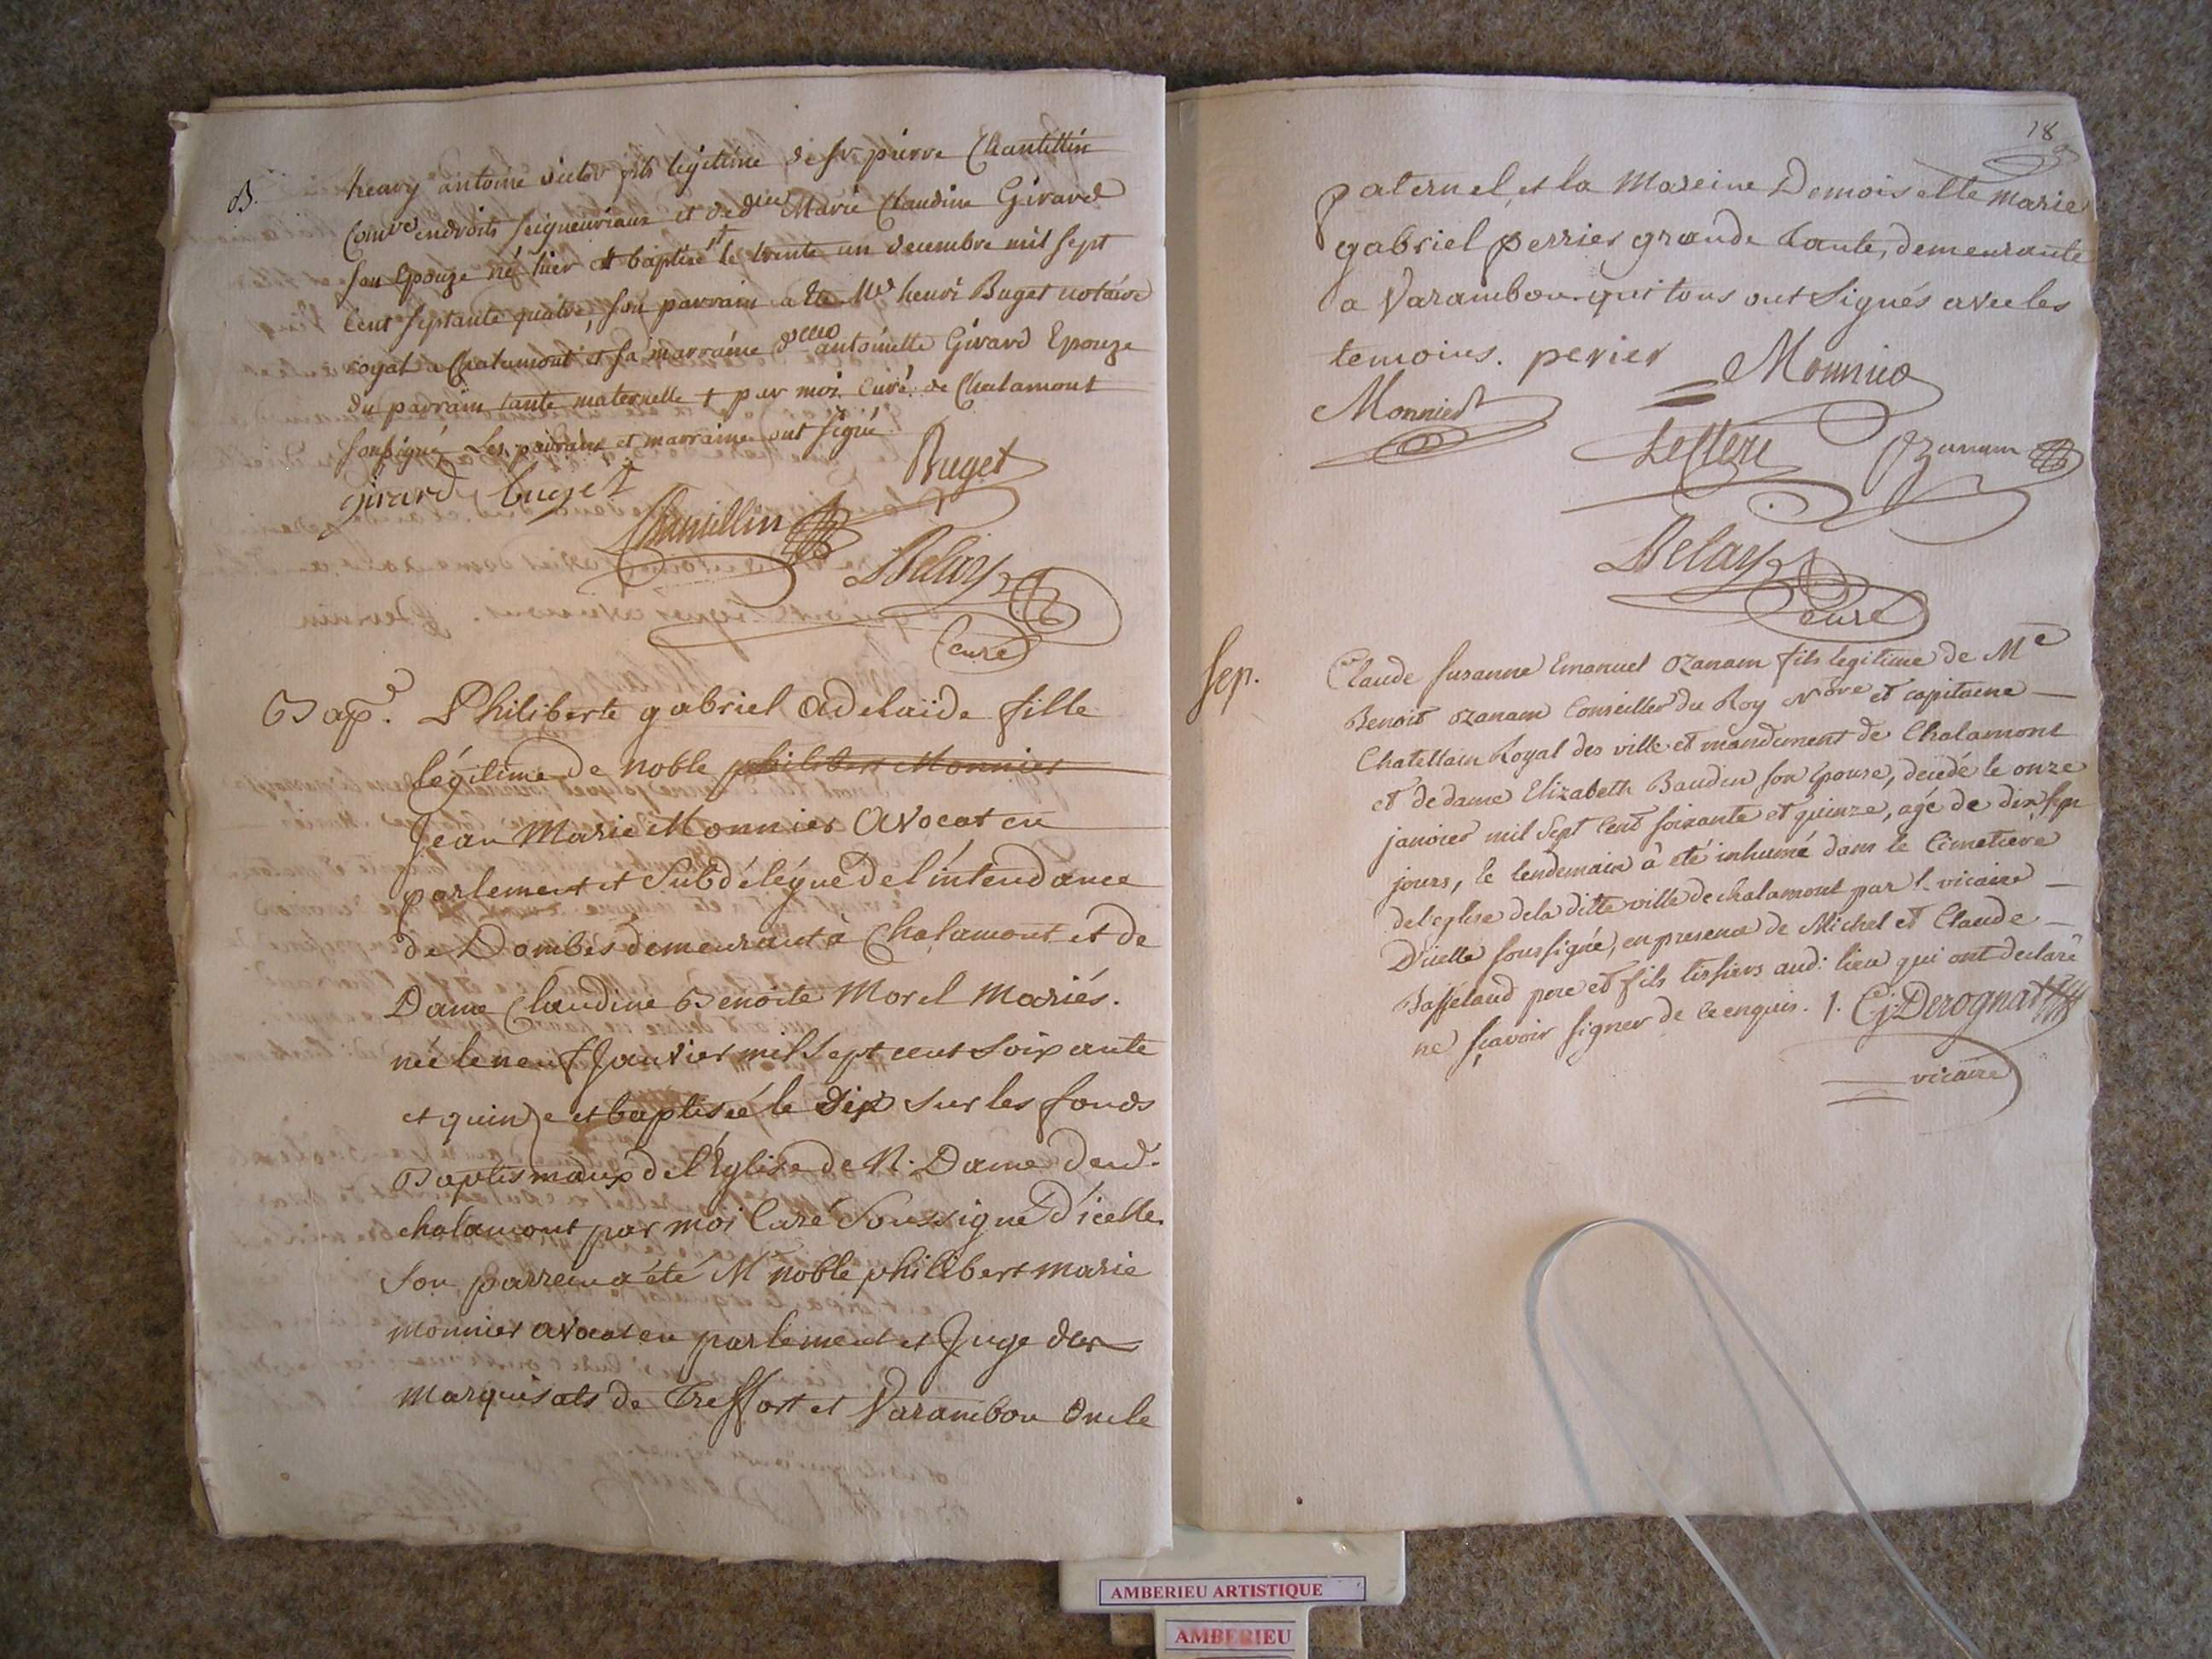 B.
heavy antoine victor fils legitime de sr pierre Chantellin
Comre en droits seigneuriaux et de dlle Marie Claudine Girard
son Epouze né hier et baptisé le trente un decembre mil sept
cent septante quatre, son parrain a ete Mre henri Buget notaire
royal a Chalamont et sa marraine dlle antoinette Girard Epouze
du parrain tante maternelle + par moi Curé de Chalamont
soussigné Les parrain et marraine ont signé
Buget
girard buget
Chantellin
Delay
Curé
Bap.
Philiberte gabriel adelaïde fille
légitime de noble philibert Monnier
Jean Marie Monnier Avocat en
parlement et Subdélégué de l'intendance
de Dombes demeurant à Chalamont et de
Dame Claudine Benoite Morel Mariés.
née le neuf Janvier mil sept cent soixante
et quinze et baptisée le dix sur les fonds
Baptismaux de l'Eglise de N: Dame dud.
chalamont par moi Curé Soussigné D'icelle.
Son parrein a été M noble philibert marie
monnier avocat en parlement et Juge des
marquisats de Treffort et Varambon Oncle
18
paternel, et la Mareine Demoiselle marie
gabriel perrier grande tante, demeurante
a Varambon qui tous ont Signés avec les
temoins. perier
Monnier
Monnier
Leclerc
Ozanam
Delay
curé
Sep.
Claude Susanne Emanuel Ozanam fils legitime de Me
Benoit Ozanam Conseiller du Roy Nore et capitaine
Chatellain Royal des ville et mandement de Chalamont
et de dame Elizabeth Baudin son Epouse, decedé le onze
janvier mil Sept Cent soixante et quinze, agé de dix sept
jours, le lendemain à été inhumé dans le Cimetiere
de l'eglise de la ditte ville de chalamont par l. vicaire
D'icelle soussigné, en presence de Michel et Claude
Basseland pere et fils tissiers aud: lieu qui ont declaré
ne sçavoir signer de ce enquis. /. Cj Derognat
vicaire
AMBERIEU ARTISTIQUE
AMBERIEU